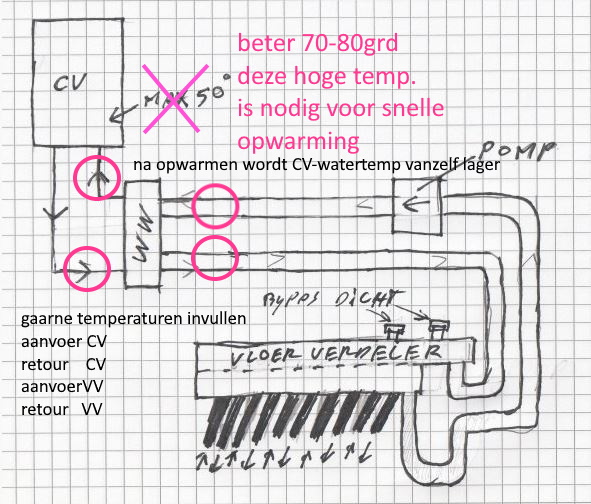 beter 70-80grd
CV
deze hoge temp.
MAX 50°
is nodig voor snelle
opwarming
POMP
na opwarmen wordt CV-watertemp vanzelf lager
WW
BYPPS DICHT
gaarne temperaturen invullen
aanvoer CV
VLOER VERDELER
retour CV
aanvoerVV
retour VV